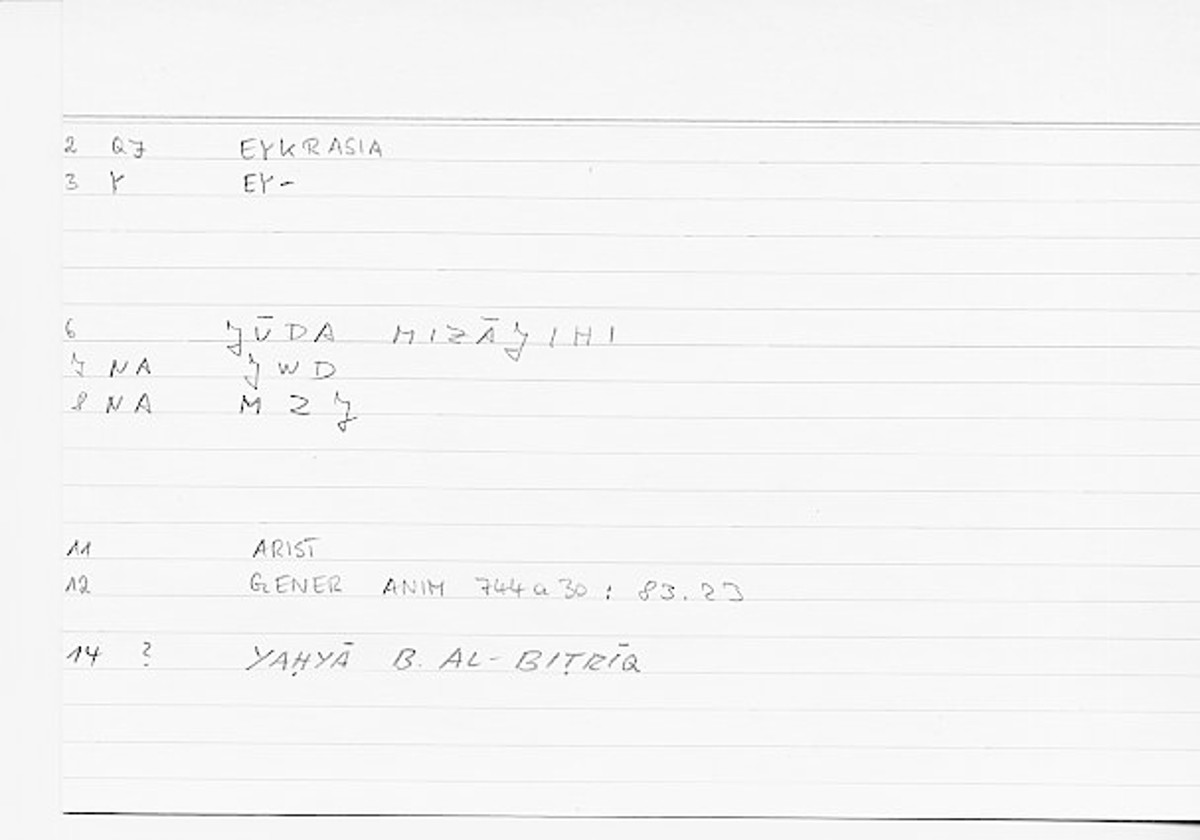 2 QJ EYKRASIA
3 Y EY-
6 JŪDA MIZĀJIHI
7 NA JWD
8 NA MZJ
11 ARIST
12 GENER ANIM 744a30 : 83.23
14 ? YAḤYĀ B. AL-BIṬRĪQ